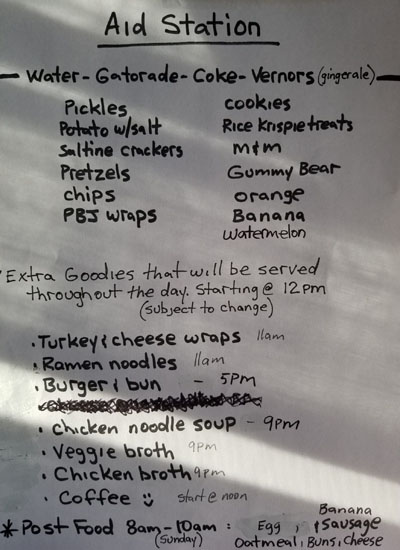 Aid Station
Water - Gatorade - Coke - Vernors (gingerale)
Pickles
Potato w/salt
Saltine crackers
Pretzels
chips
PBJ wraps
cookies
Rice Krispie treats
m&m
Gummy Bear
orange
Banana
Watermelon
Extra Goodies that will be served
throughout the day. Starting @ 12pm
(subject to change)
• Turkey & cheese wraps 11am
• Ramen noodles 11am
• Burger & bun - 5pm
• chicken noodle soup - 9pm
• Veggie broth 9pm
• Chicken broth 9pm
• Coffee start @ noon
* Post Food 8am - 10am : Egg, & Sausage
(Sunday)
Banana
Oatmeal, Buns, Cheese